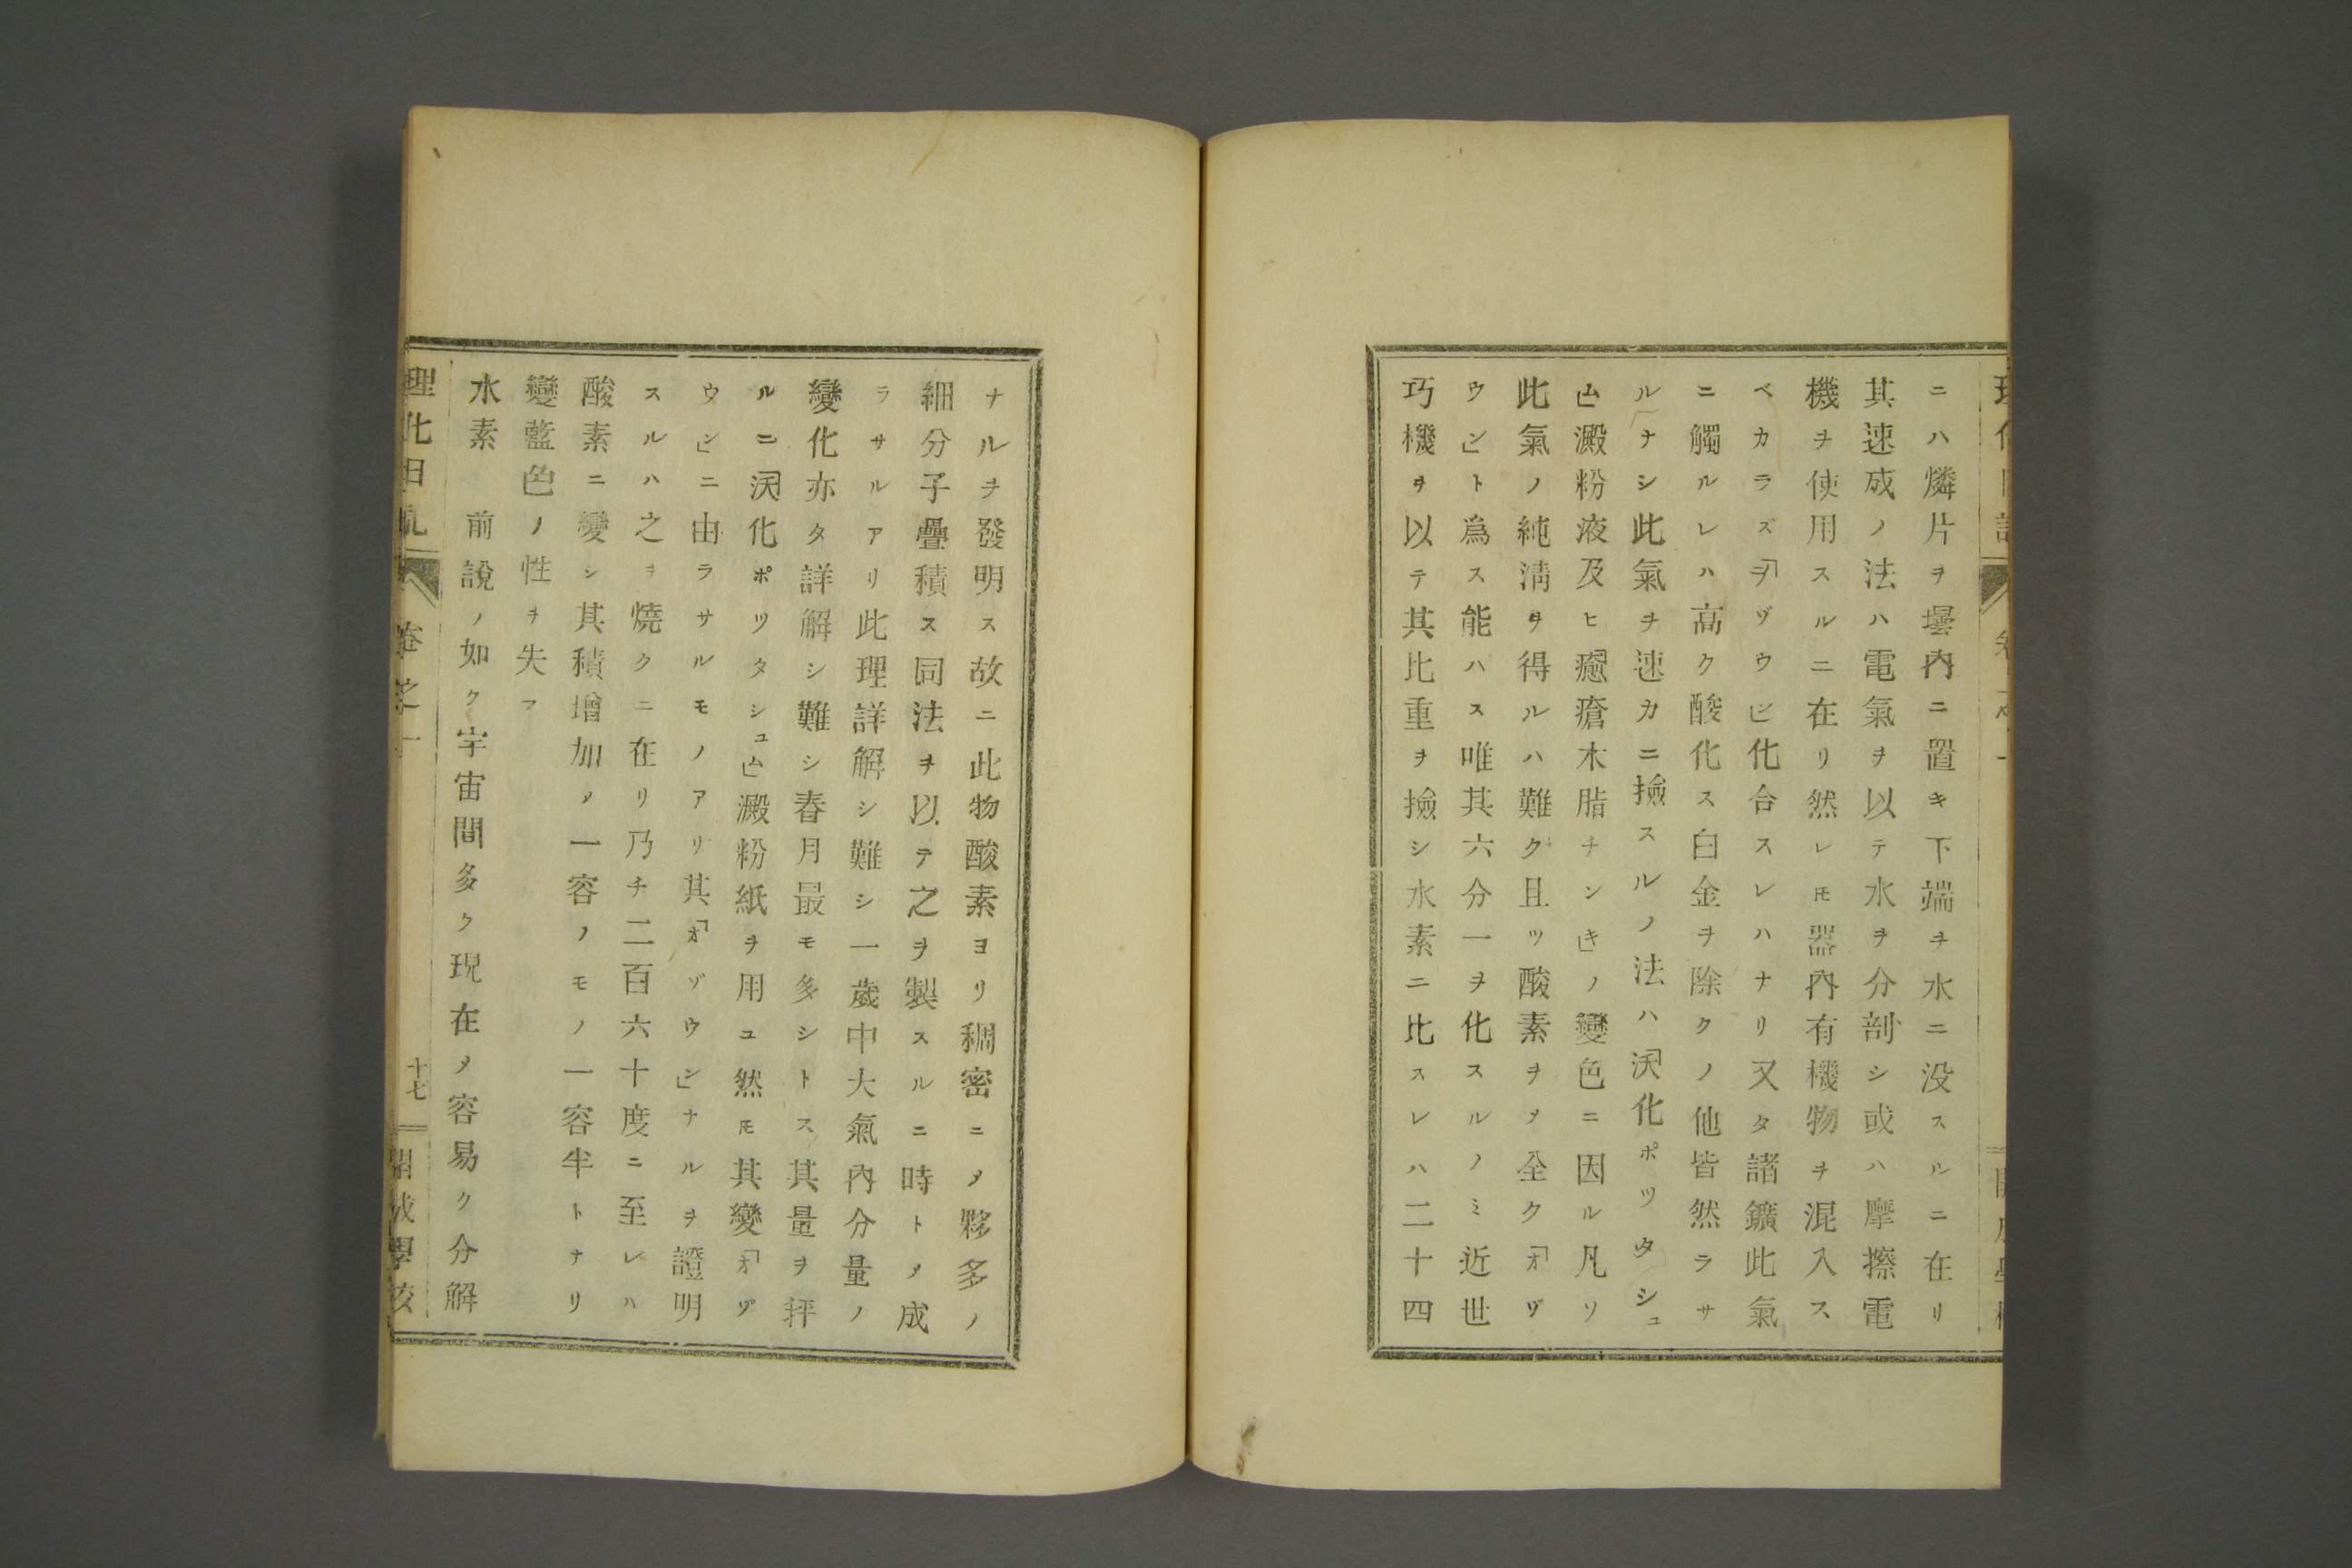 ニハ燐片ヲ壜內ニ置キ下端ヲ水ニ没スルニ在リ
其速成ノ法ハ電氣ヲ以テ水ヲ分剖シ或ハ摩擦電
機ヲ使用スルニ在リ然レ𪜈器內有機物ヲ混入ス
ベカラズ「ヲヅウン」化合スレハナリ又タ諸鑛此氣
ニ觸ルレハ高ク酸化ス白金ヲ除クノ他皆然ラサ
ルナシ此氣ヲ速カニ撿スルノ法ハ「沃化ポツタシュ
ム」澱粉液及ヒ「癒瘡木脂チンキ」ノ變色ニ因ル凡ソ
此氣ノ純淸ヲ得ルハ難ク且ツ酸素ヲ〆全ク「オヅ
ウン」ト爲ス能ハス唯其六分一ヲ化スルノミ近世
巧機ヲ以テ其比重ヲ撿シ水素ニ比スレハ二十四
ナルヲ發明ス故ニ此物酸素ヨリ稠密ニ〆夥多ノ
細分子疊積ス同法ヲ以テ之ヲ製スルニ時ト〆成
ラサルアリ此理詳解シ難シ一歲中大氣內分量ノ
變化亦タ詳解シ難シ春月最モ多シトス其量ヲ秤
ルニ「沃化ポツタシュム」澱粉紙ヲ用ユ然𪜈其變「オヅ
ウン」ニ由ラサルモノアリ其「オゾウン」ナルヲ證明
スルハ之ヲ燒クニ在リ乃チ二百六十度ニ至レハ
酸素ニ變シ其積增加〆一容ノモノ一容半トナリ
變藍色ノ性ヲ失フ
水素　前說ノ如ク宇宙間多ク現在〆容易ク分解
理化日記　卷之一　十七　開成學校